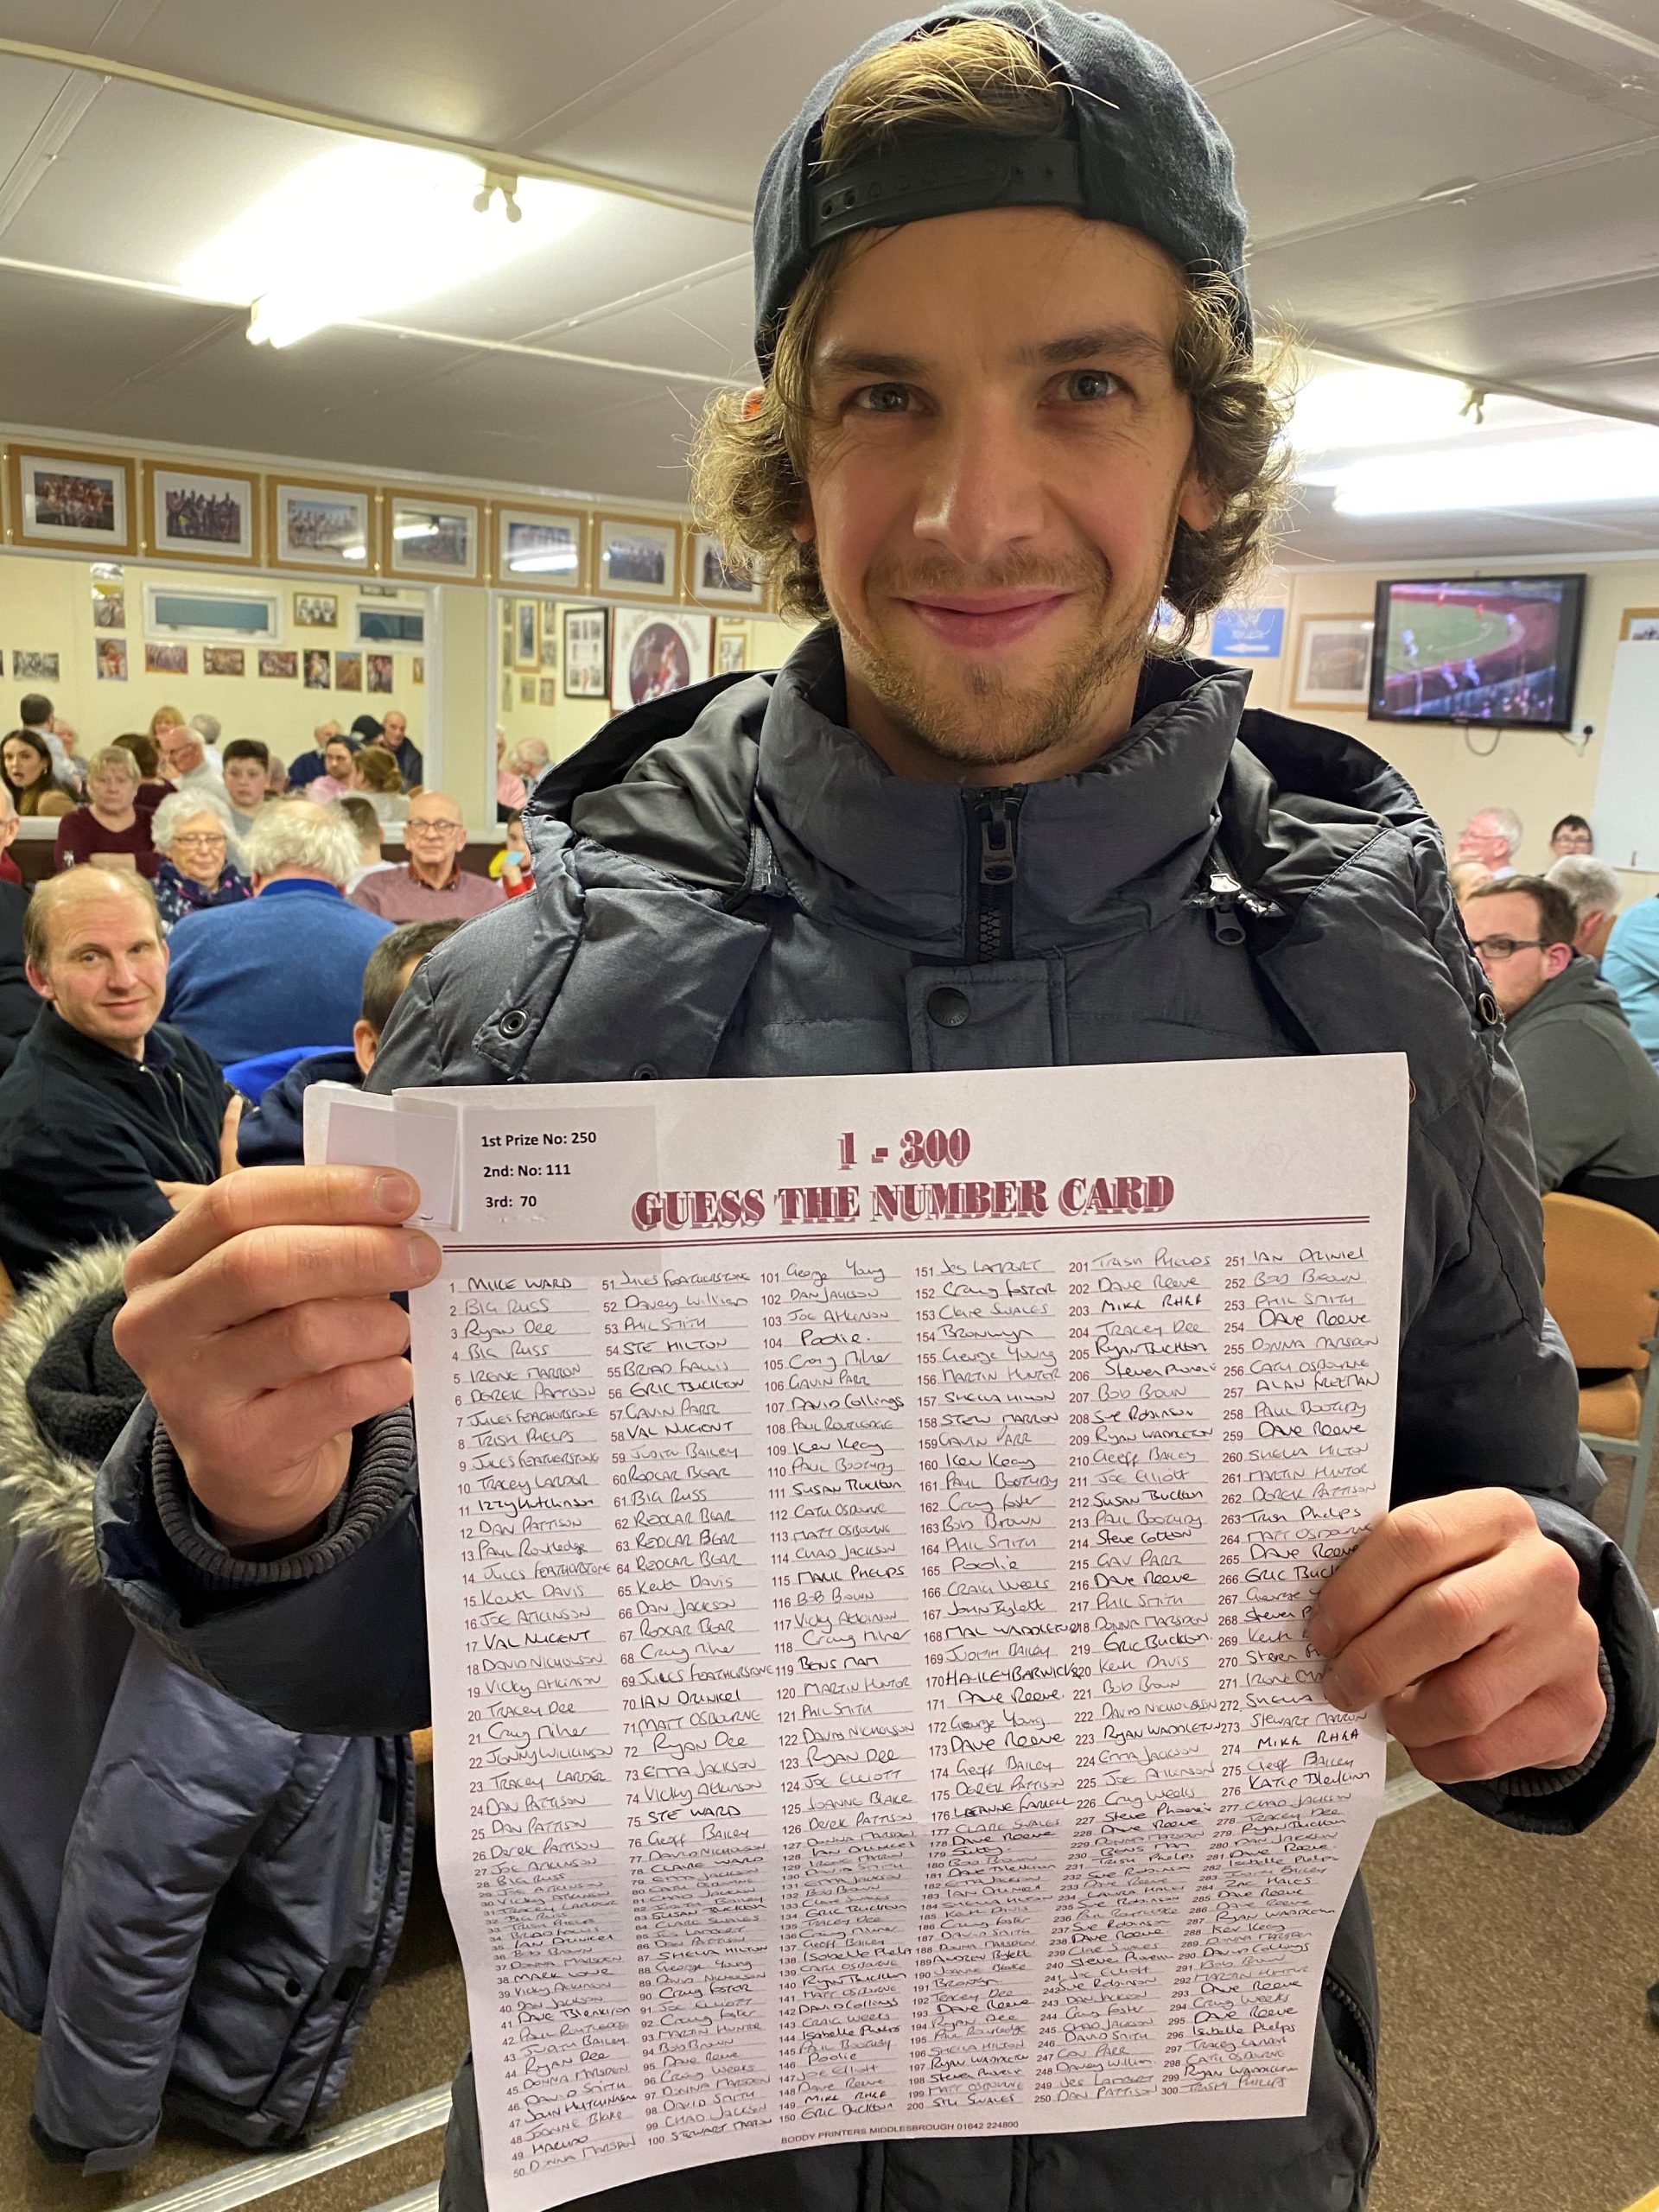 1st Prize No: 250
2nd: No: 111
3rd: 70
1 - 300
GUESS THE NUMBER CARD
1 MIKE WARD
2 BIG RUSS
3 Ryan Dee
4 BIG RUSS
5 IRENE MARRON
6 DEREK PATTISON
7 JULES FEATHERSTONE
8 TRISH PHELPS
9 JULES FEATHERSTONE
10 TRACEY LARDER
11 Izzy Hutchinson
12 DAN PATTISON
13 Paul Routledge
14 JULES FEATHERSTONE
15 Keith DAVIS
16 JOE ATKINSON
17 VAL NUGENT
18 DAVID NICHOLSON
19 Vicky Atkinson
20 TRACEY DEE
21 Craig Milner
22 JONNY WILKINSON
23 TRACEY LARDER
24 DAN PATTISON
25 DAN PATTISON
26 Derek PATTISON
27 JOE ATKINSON
28 BIG RUSS
29 JOE ATKINSON
30 VICKY ATKINSON
31 TRACEY LARDER
32 BIG RUSS
33 TRISH PHELPS
34 BRAD FALLIS
35 IAN DRINKEL
36 BOB BROWN
37 DONNA MARSDEN
38 MARK LOVE
39 Vicky ATKINSON
40 DAN JACKSON
41 DAVE Tblenkiron
42 PAUL ROUTLEDGE
43 JUDITH BAILEY
44 RYAN DEE
45 DONNA MARSDEN
46 DAVID SMITH
47 JOHN HUTCHINSON
48 JOANNE BLAKE
49
50 DONNA MARSDEN
51 JULES FEATHERSTONE
52 Davey Willien
53 PHIL SMITH
54 STE HILTON
55 BRAD FALLIS
56 ERIC BUCKTON
57 GAVIN PARR
58 VAL NUGENT
59 JUDITH BAILEY
60 REDCAR BEAR
61 BIG RUSS
62 REDCAR BEAR
63 REDCAR BEAR
64 REDCAR BEAR
65 Keith DAVIS
66 DAN JACKSON
67 REDCAR BEAR
68 Craig Milner
69 JULES FEATHERSTONE
70 IAN DRINKEL
71 MATT OSBOURNE
72 RYAN DEE
73 EMMA JACKSON
74 VICKY ATKINSON
75 STE WARD
76 Geoff BAILEY
77 DAVID NICHOLSON
78 CLAIRE WARD
79 EMMA JACKSON
80 CATH OSBOURNE
81 CHAD JACKSON
82 JUDITH BAILEY
83 SUSAN BUCKTON
84 CLARE SWALES
85 JES LAMPORT
86 DAN PATTISON
87 SHEILA HILTON
88 George Young
89 DAVID NICHOLSON
90 Craig FOSTER
91 JOE ELLIOTT
92 Craig Foster
93 MARTIN HUNTER
94 BOB BROWN
95 DAVE Reeve
96 Craig WEEKS
97 DONNA MARSDEN
98 DAVID SMITH
99 CHAD JACKSON
100 STEWART MARRON
101 George Young
102 DAN JACKSON
103 JOE ATKINSON
104 Poolie.
105 Craig Milner
106 GAVIN PARR
107 DAVID Collings
108 PAUL ROUTLEDGE
109 Kev Keay
110 PAUL BOOTHBY
111 SUSAN Buckton
112 CATH OSBOURNE
113 MATT OSBOURNE
114 CHAD JACKSON
115 MARK PHELPS
116 BOB BROWN
117 Vicky Atkinson
118 Craig Milner
119 BENS MAM
120 MARTIN HUNTER
121 PHIL SMITH
122 DAVID NICHOLSON
123 RYAN DEE
124 JOE ELLIOTT
125 JOANNE BLAKE
126 Derek PATTISON
127 DONNA MARSDEN
128 IAN DRINKEL
129 IRENE MARRON
130 DAVID SMITH
131 EMMA JACKSON
132 BOB BROWN
133 CLARE SWALES
134 ERIC BUCKTON
135 TRACEY DEE
136 Craig Milner
137 GEOFF BAILEY
138 ISABELLE Phelps
139 CATH OSBOURNE
140 RYAN BUCKTON
141 MATT OSBOURNE
142 DAVID Collings
143 CRAIG WEEKS
144 Isabelle Phelps
145 PAUL BOOTHBY
146 Poolie
147 JOE Elliott
148 Dave Reeve
149 MIKE RHEA
150 ERIC BUCKTON
151 JES LAMPORT
152 Craig FOSTER
153 Clare SWALES
154 BRONWYN
155 George Young
156 MARTIN HUNTER
157 SHEILA HILTON
158 STEW MARRON
159 GAVIN PARR
160 Kev Keay
161 PAUL BOOTHBY
162 Craig Foster
163 BOB BROWN
164 PHIL SMITH
165 Poolie
166 CRAIG WEEKS
167 JOHN Bylett
168 MAL WADDLETON
169 JUDITH BAILEY
170 HAYLEY BARWICK
171 DAVE Reeve.
172 George Young
173 DAVE Reeve
174 Geoff BAILEY
175 DEREK PATTISON
176 LEEANNE FARRELL
177 CLARE SWALES
178 DAVE Reeve
179
180 BOB BROWN
181 DAVE Tblenkiron
182 EMMA JACKSON
183 IAN DRINKEL
184 SHEILA HILTON
185 Keith DAVIS
186 Craig FOSTER
187 DAVID SMITH
188 DONNA MARSDEN
189 ANDREW Bylett
190 JOANNE Blake
191 Bronwyn
192 TRACEY DEE
193 DAVE Reeve
194 RYAN DEE
195 Paul Routledge
196 SHEILA HILTON
197 RYAN WADDLETON
198 Steven
199 MATT OSBOURNE
200 STU SWALES
201 TRISH PHELPS
202 DAVE Reeve
203 MIKE RHEA
204 TRACEY DEE
205 RYAN BUCKTON
206 Steven
207 BOB BROWN
208 SUE ROBINSON
209 RYAN WADDLETON
210 Geoff BAILEY
211 JOE Elliott
212 SUSAN BUCKTON
213 PAUL BOOTHBY
214 Steve Cotton
215 GAV PARR
216 DAVE Reeve
217 PHIL SMITH
218 DONNA MARSDEN
219 ERIC Buckton.
220 Keith DAVIS
221 BOB BROWN
222 DAVID NICHOLSON
223 RYAN WADDLETON
224 EMMA JACKSON
225 JOE ATKINSON
226 Craig WEEKS
227 Steve
228 DAVE Reeve
229 DONNA MARSDEN
230 BENS MAM
231 TRISH Phelps
232 SUE ROBINSON
233 DAVE Reeve
234 LAURA HALES
235 SUE ROBINSON
236 PAUL ROUTLEDGE
237 SUE ROBINSON
238 DAVE Reeve
239 Clare SWALES
240 Steven
241 JOE Elliott
242 SUE ROBINSON
243 DAN JACKSON
244 Craig FOSTER
245 CHAD JACKSON
246 DAVID SMITH
247 GAV PARR
248 Davey Willien
249 JES LAMPORT
250 DAN PATTISON
251 IAN DRINKEL
252 BOB BROWN
253 PHIL SMITH
254 DAVE Reeve
255 DONNA MARSDEN
256 CATH OSBOURNE
257 ALAN FREEMAN
258 PAUL BOOTHBY
259 DAVE Reeve
260 SHEILA HILTON
261 MARTIN HUNTER
262 DEREK PATTISON
263 Trish Phelps
264 MATT OSBOURNE
265 DAVE Reeve
266 ERIC
267 George
268 Steven
269 Keith
270 Steven
271 IRENE
272 SHEILA
273 STEWART MARRON
274 MIKE RHEA
275 Geoff BAILEY
276 KATIE Tblenkiron
277 CHAD JACKSON
278 TRACEY DEE
279 RYAN BUCKTON
280 DAN JACKSON
281 DAVE Reeve
282 Isabelle Phelps
283 JUDITH BAILEY
284 ZAC HALES
285 DAVE Reeve
286 DAVE Reeve
287 RYAN WADDLETON
288 Kev Keay
289 DONNA MARSDEN
290 DAVID Collings
291 BOB BROWN
292 MARTIN HUNTER
293 DAVE Reeve
294 Craig WEEKS
295 DAVE Reeve
296 Isabelle Phelps
297 TRACEY LARDER
298 CATH OSBOURNE
299 RYAN WADDLETON
300 TRISH PHELPS
BODDY PRINTERS MIDDLESBROUGH 01642 224800